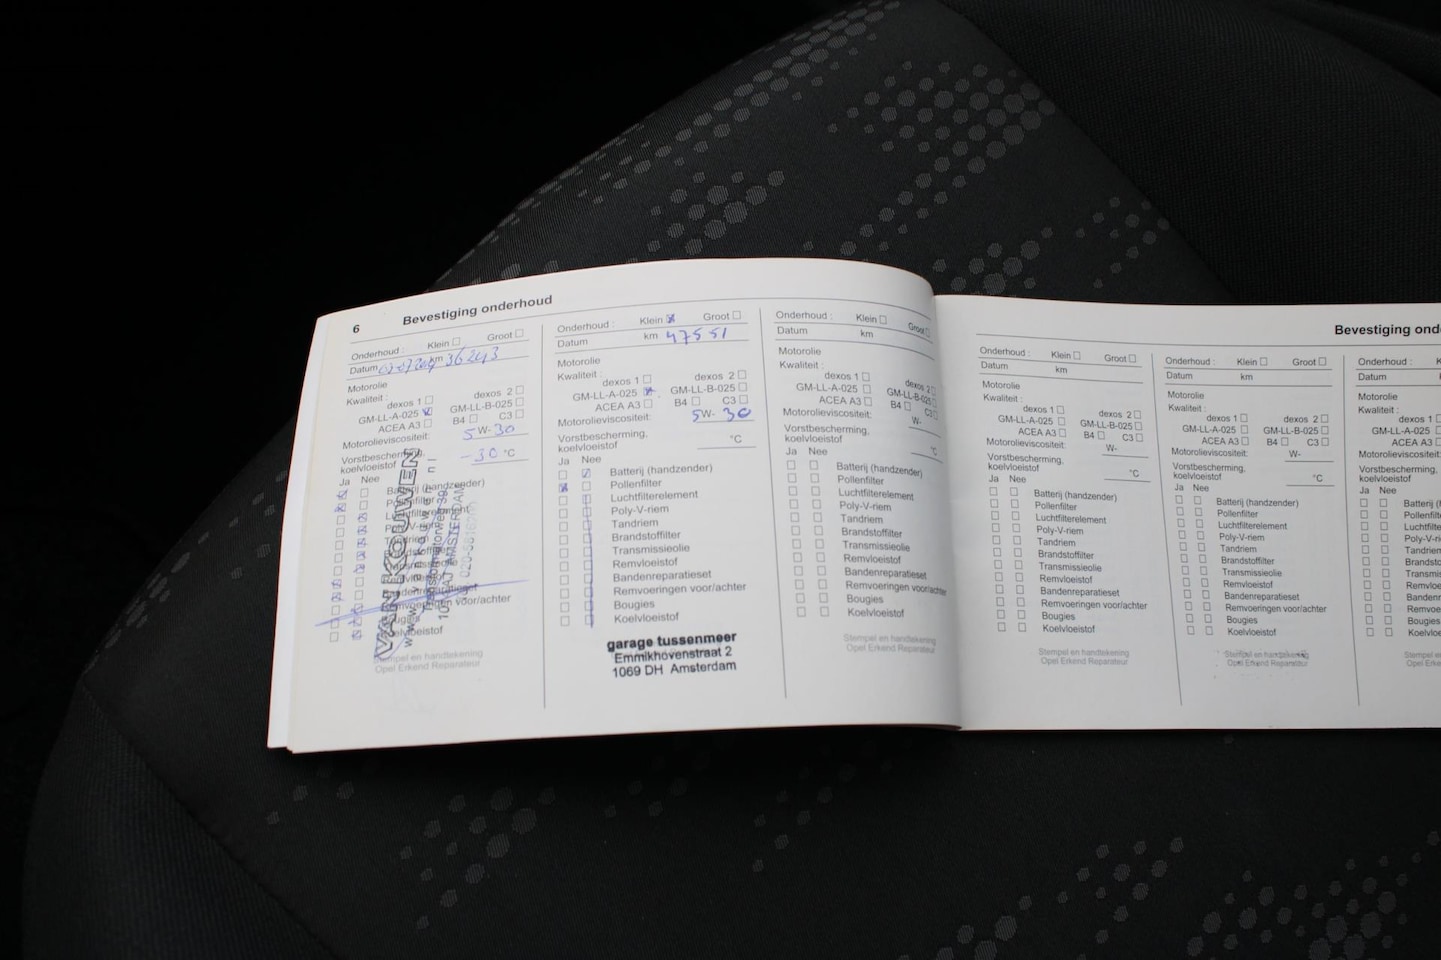 6 Bevestiging onderhoud
Onderhoud : Klein Groot
Datum km 36243
Motorolie
Kwaliteit :
dexos 1 dexos 2
GM-LL-A-025 GM-LL-B-025
ACEA A3 B4 C3
Motorolieviscositeit: 5 W- 30
Vorstbescherming,
koelvloeistof -30 °C
Ja Nee
Batterij (handzender)
Pollenfilter
Luchtfilterelement
Poly-V-riem
Tandriem
Brandstoffilter
Transmissieolie
Remvloeistof
Bandenreparatieset
Remvoeringen voor/achter
Bougies
Koelvloeistof
VAN KOUWEN
AMSTERDAM
Stempel en handtekening
Opel Erkend Reparateur
Onderhoud : Klein Groot
Datum km 47551
Motorolie
Kwaliteit :
dexos 1 dexos 2
GM-LL-A-025 GM-LL-B-025
ACEA A3 B4 C3
Motorolieviscositeit: 5W- 30
Vorstbescherming,
koelvloeistof °C
Ja Nee
Batterij (handzender)
Pollenfilter
Luchtfilterelement
Poly-V-riem
Tandriem
Brandstoffilter
Transmissieolie
Remvloeistof
Bandenreparatieset
Remvoeringen voor/achter
Bougies
Koelvloeistof
garage tussenmeer
Emmikhovenstraat 2
1069 DH Amsterdam
Onderhoud : Klein Groot
Datum km
Motorolie
Kwaliteit :
dexos 1 dexos 2
GM-LL-A-025 GM-LL-B-025
ACEA A3 B4 C3
Motorolieviscositeit: W-
Vorstbescherming,
koelvloeistof °C
Ja Nee
Batterij (handzender)
Pollenfilter
Luchtfilterelement
Poly-V-riem
Tandriem
Brandstoffilter
Transmissieolie
Remvloeistof
Bandenreparatieset
Remvoeringen voor/achter
Bougies
Koelvloeistof
Stempel en handtekening
Opel Erkend Reparateur
Bevestiging ond
Onderhoud : Klein Groot
Datum km
Motorolie
Kwaliteit :
dexos 1 dexos 2
GM-LL-A-025 GM-LL-B-025
ACEA A3 B4 C3
Motorolieviscositeit: W-
Vorstbescherming,
koelvloeistof °C
Ja Nee
Batterij (handzender)
Pollenfilter
Luchtfilterelement
Poly-V-riem
Tandriem
Brandstoffilter
Transmissieolie
Remvloeistof
Bandenreparatieset
Remvoeringen voor/achter
Bougies
Koelvloeistof
Stempel en handtekening
Opel Erkend Reparateur
Onderhoud : Klein Groot
Datum km
Motorolie
Kwaliteit :
dexos 1 dexos 2
GM-LL-A-025 GM-LL-B-025
ACEA A3 B4 C3
Motorolieviscositeit: W-
Vorstbescherming,
koelvloeistof °C
Ja Nee
Batterij (handzender)
Pollenfilter
Luchtfilterelement
Poly-V-riem
Tandriem
Brandstoffilter
Transmissieolie
Remvloeistof
Bandenreparatieset
Remvoeringen voor/achter
Bougies
Koelvloeistof
Stempel en handtekening
Opel Erkend Reparateur
Onderhoud : Klein
Datum
Motorolie
Kwaliteit :
dexos 1
GM-LL-A-025
ACEA A3
Motorolieviscositeit:
Vorstbescherming,
koelvloeistof
Ja Nee
Batterij (h
Pollenfilt
Luchtfilte
Poly-V-ri
Tandriem
Brandsto
Transmis
Remvloei
Bandenr
Remvoe
Bougies
Koelvloe
Stempel e
Opel Erke